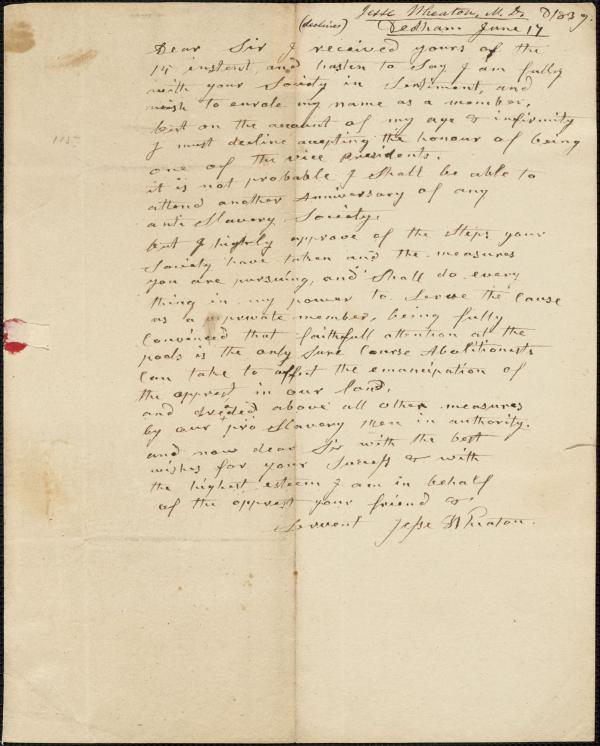 Jesse Wheaton, M.D. 1839.
(declines)
Dedham June 17
Dear Sir I received yours of the
15 instent, and hasten to Say I am fully
with your Society in Sentiment, and
wish to enrole my name as a member,
but on the account of my age & infirmity
I must decline accepting the honour of being
one of the vice Presidents.
it is not probable I Shall be able to
attend another Anniversary of any
anti Slavery Society,
but I highly approve of the Steps your
Society have taken and the measures
you are pursuing, and Shall do every
thing in my power to Serve the Cause
as a private member, being fully
Convinced that faithfull attention at the
pools is the only Sure Course Abolitionists
Can take to affect the emancipation of
the opprest in our land,
and dreded above all other measures
by our pro Slavery men in authority.
and now dear Sir with the best
wishes for your Success & with
the highest esteem I am in behalf
of the opprest your friend &
Servent Jesse Wheaton.
115